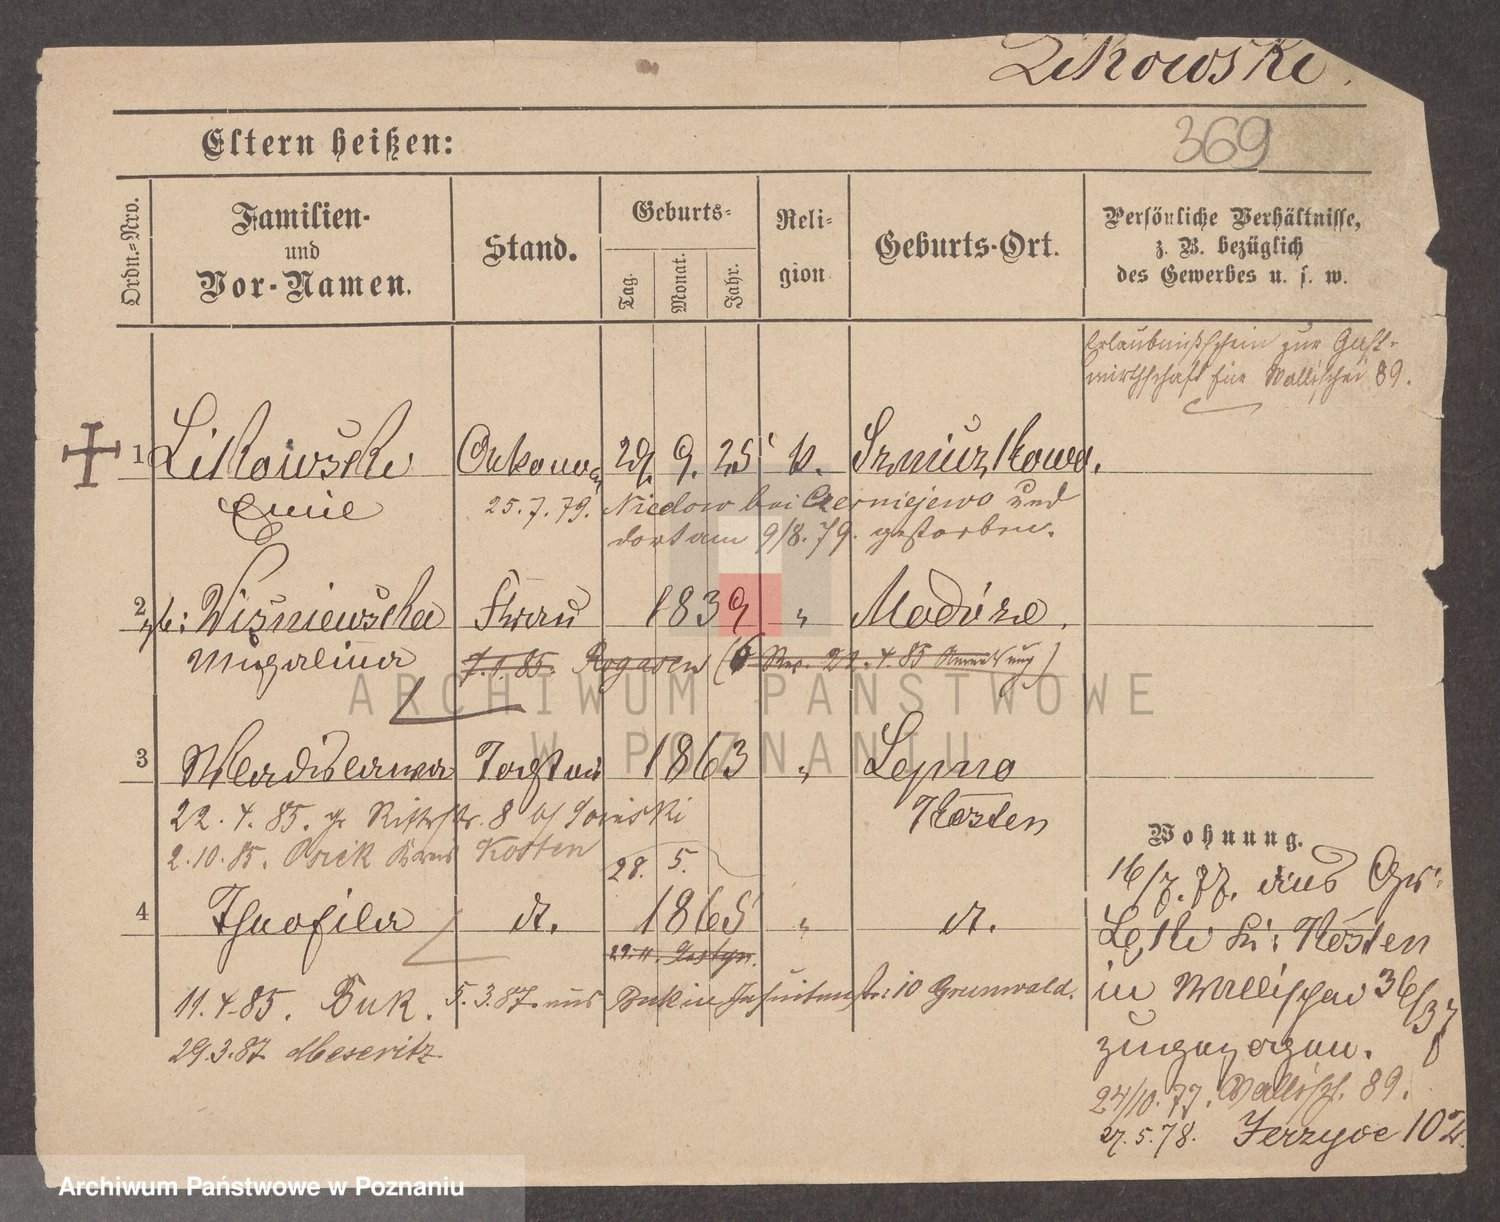 Likowski.
369
Eltern heißen:
Ordn.-Nro.
Familien-
und
Vor-Namen.
Stand.
Geburts-
Tag.
Monat.
Jahr.
Reli-
gion
Geburts-Ort.
Persönliche Verhältnisse,
z. B. bezüglich
des Gewerbes u. s. w.
Erlaubnißschein zur Gast-
wirthschaft für Wallischei 89.
1 Likowski Oekonom 29. 9. 25 k.
Emil 25. 7. 79. bei Czerniejewo und
dort am 9/8. 79. gestorben.
2 Wiśniewska Frau 1839 " Modrze.
7.1.85. Rogasen 22. 4. 85
ARCHIWUM PAŃSTWOWE
W POZNANIU
3 Wladislawa Tochter 1863 " Lepno
Kosten
22. 4. 85. Ritterstr. 8
2.10.85. Kreis Kosten
28. 5.
4 Theofila dt. 1865 " dt.
29. 11. Gostyn.
11. 4. 85. Buk. 5. 3. 87. aus Buk in Jesuitenstr: 10 Grunwald.
29.3.87 Meseritz
Wohnung.
16/7. 77. aus
Kr: Kosten
in Wallischei 36/37
zugezogen.
24/10. 77. Wallisch. 89.
27. 5. 78. Jerzyce 102.
Archiwum Państwowe w Poznaniu